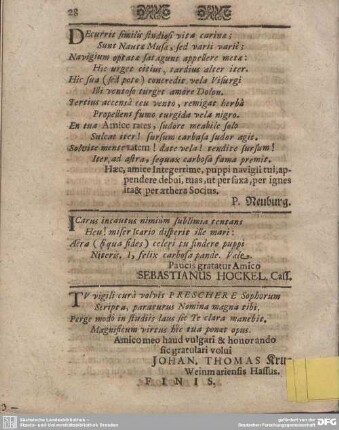 28
DEcurrit similis studiosi vita carina;
Sunt Nautæ Musæ, sed varii variè;
Navigium optatæ satagunt appellere metæ:
Hic urget citius, tardius alter iter.
Hic sua (sed pota) concredit vela Visurgi
Illi ventose turget amore Dolon.
Tertius accensâ ceu vento, remigat herbâ
Propellens fumo turgida vela nigro.
En tua Amice rates, sudore meabile solo
Sulcat iter! sursum carbasa sudor agit.
Sistite mentem! date vela! tendite sursum!
Iter ad astra, sequax carbasa fama premit.
Hæc, amice Integerrime, puppi navigii tui, ap-
pendere debui, tuus, ut per saxa, per ignes
ita & per æthera Socius.
P. Neuburg.
ICarus incautus nimium sublimia tentans
Heu! miser Icario disperit ille mari:
Aëra (si qua fides) celeri tu findere puppi
Niteris, I, felix carbasa pande. Vale.
Paucis gratatur Amico
SEBASTIANUS HOCKEL, Cass.
TV vigili curâ volvis PRESCHERE Sophorum
Scripta, paraturus Nomina magna tibi.
Perge modo in studiis laus sic Te clara manebit,
Magnificum virtus hîc tua ponet opus.
Amico meo haud vulgari & honorando
sic gratulari volui
JOHAN. THOMAS
Weinmariensis Hassus.
FINIS.